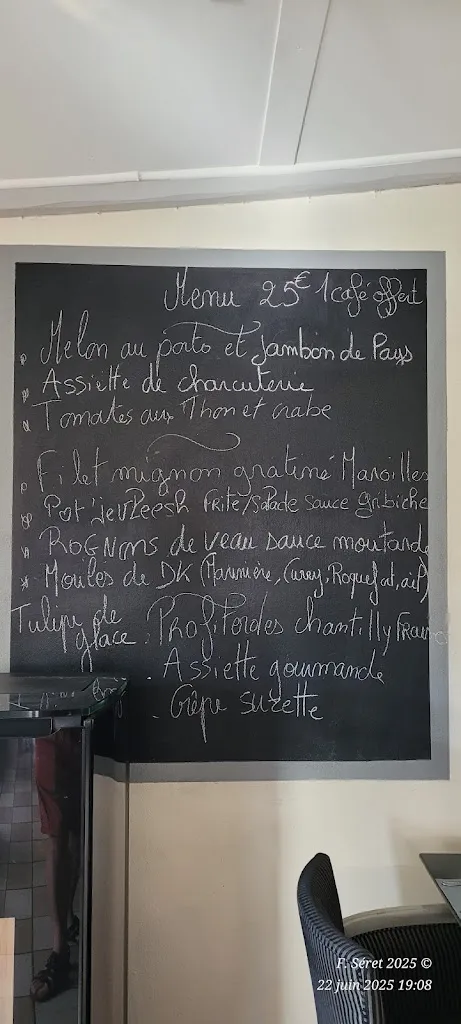 Menu 25€ 1 café offert
Melon au porto et jambon de Pays
Assiette de charcuterie
Tomates aux Thon et crabe
Filet mignon gratiné Maroilles
Pot'jevleesh FRite/salade sauce gribiche
RoGNons de veau sauce moutarde
Moules de DK (Marinière, Curry, Roquefort, ail)
Tulipe de glace
. Profiteroles chantilly
. Assiette gourmande
. Crêpe suzette
F. Séret 2025 ©
22 juin 2025 19:08